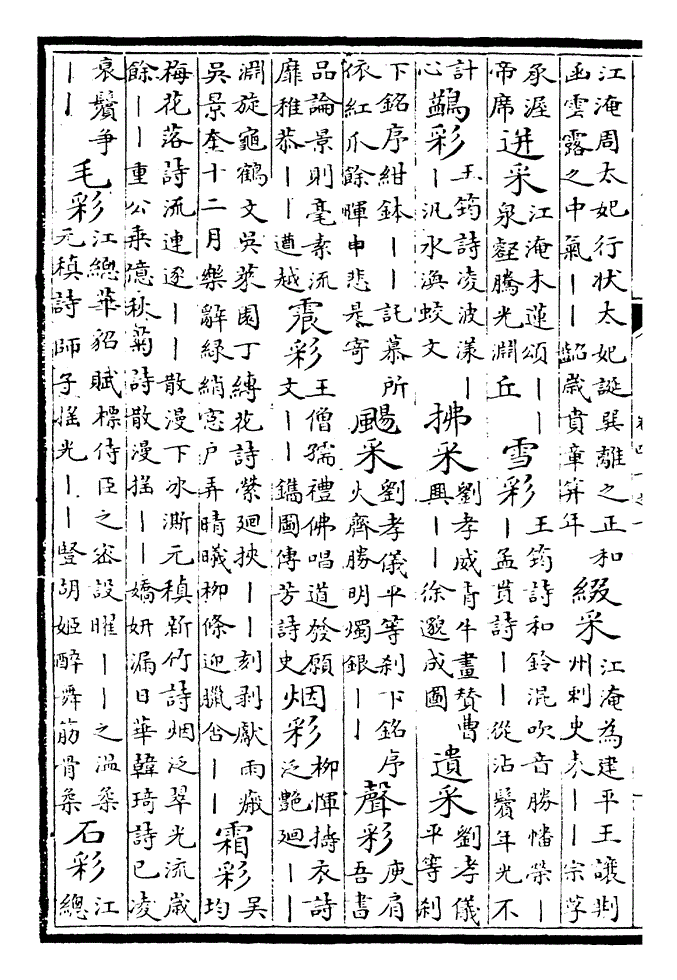 江淹周太妃行狀太妃誕巽離之正和
函雲露之中氣丨丨齠歲賁章筓年
綴采
江淹為建平王讓荆
州刺史表丨丨宗孚
承渥
帝席
迸采
江淹木蓮頌丨丨
泉壑騰光淵丘
雪彩
王筠詩和鈴混吹音勝幡榮丨
丨孟貫詩丨丨從沾鬢年光不
計
心
鷁彩
王筠詩凌波漾丨
丨汎水渙蛟文
拂采
劉孝威青牛畫贊曹
興丨丨徐邈成圖
遺采
劉孝儀
平等刹
下銘序紺鉢丨丨託慕所
依紅爪餘暉申悲是寄
颺采
劉孝儀平等刹下銘序
火齊勝明燭銀丨丨
聲彩
庾肩
吾書
品論景則毫素流
靡稚恭丨丨遒越
震彩
王僧孺禮佛唱道發願
文丨丨鐫圖傳芳詩史
烟彩
柳惲擣衣詩
泛艷廻丨丨
淵旋龜鶴文吳萊園丁縛花詩縈廻挾丨丨刻剥獻雨
吳景奎十二月樂辭綠綃窓户弄晴曦柳條迎臘含丨丨
霜彩
吳
均
梅花落詩流連逐丨丨散漫下冰澌元稹新竹詩烟泛翠光流歲
餘丨丨重公乘億秋菊詩散漫揺丨丨嬌妍漏日華韓琦詩已凌
哀鬢爭
丨丨
毛彩
江總華貂賦標侍臣之密設曜丨丨之温柔
元稹詩師子揺光丨丨豎胡姬醉舞筋骨柔
石彩
江
總